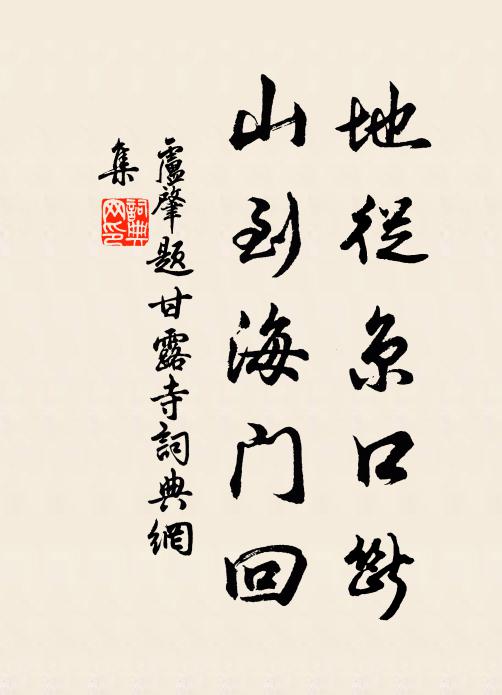 地從京口斷
山到海門回
盧肇題甘露寺詞典網
集
詞典網印